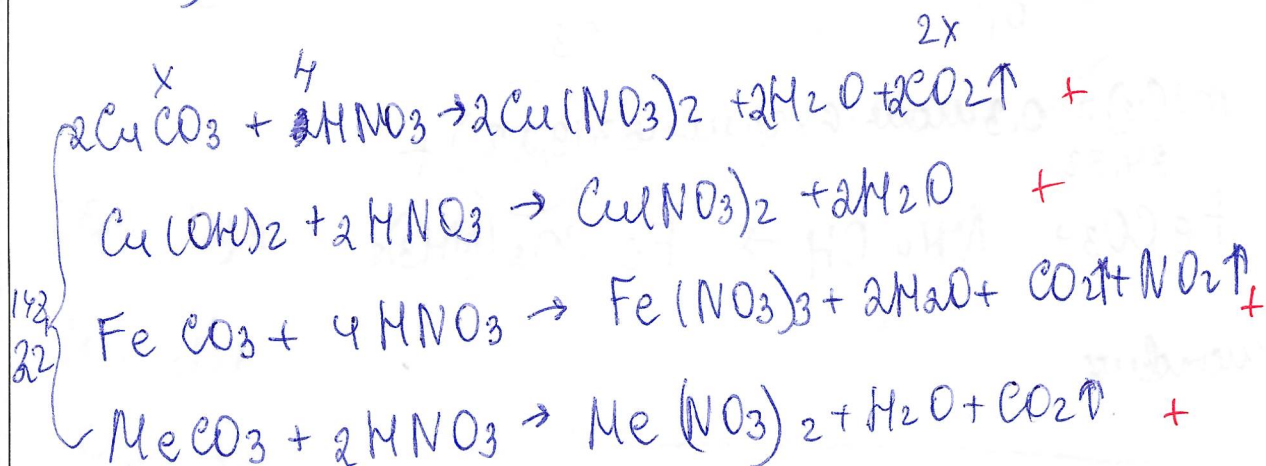 2x
x 4
2CuCO3 + 2HNO3 → 2Cu(NO3)2 + 2H2O + 2CO2↑ +
Cu(OH)2 + 2HNO3 → Cu(NO3)2 + 2H2O +
FeCO3 + 4HNO3 → Fe(NO3)3 + 2H2O + CO2↑ + NO2↑ +
MeCO3 + 2HNO3 → Me(NO3)2 + H2O + CO2↑ +